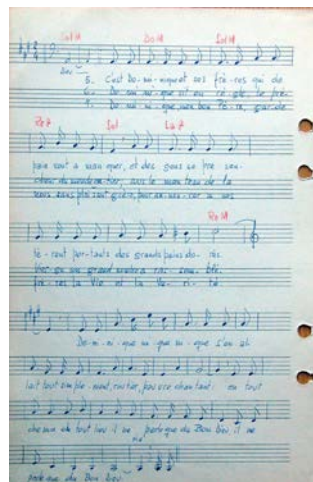 Sol M Do M Sol M
5. C'est Do-mi-nique et ses frè-res qui de
6. Do-mi-ni-que vit en rê-ve le Prê-
7. Do-mi-ni-que mon bon Pè-re, garde
Re 7 Sol La 7
pain vont à man quer, et des
cheurs du monde en-tier, sous le man teau de la
nous sim-plé et gais, pour an-non-cer à nos
Re M
té-rent por-tants des grands pains do-rés.
Vier-ge en grand nombre ras-sem-blé.
frè-res la Vie et la Vé-ri-té
Do-mi-ni-que ni-que ni-que s'en al
lait tout simple-ment, routier, pauvre chantant: en tout
che min en tout lieu il ne parle que du Bon Dieu il ne
parle que du Bon Dieu